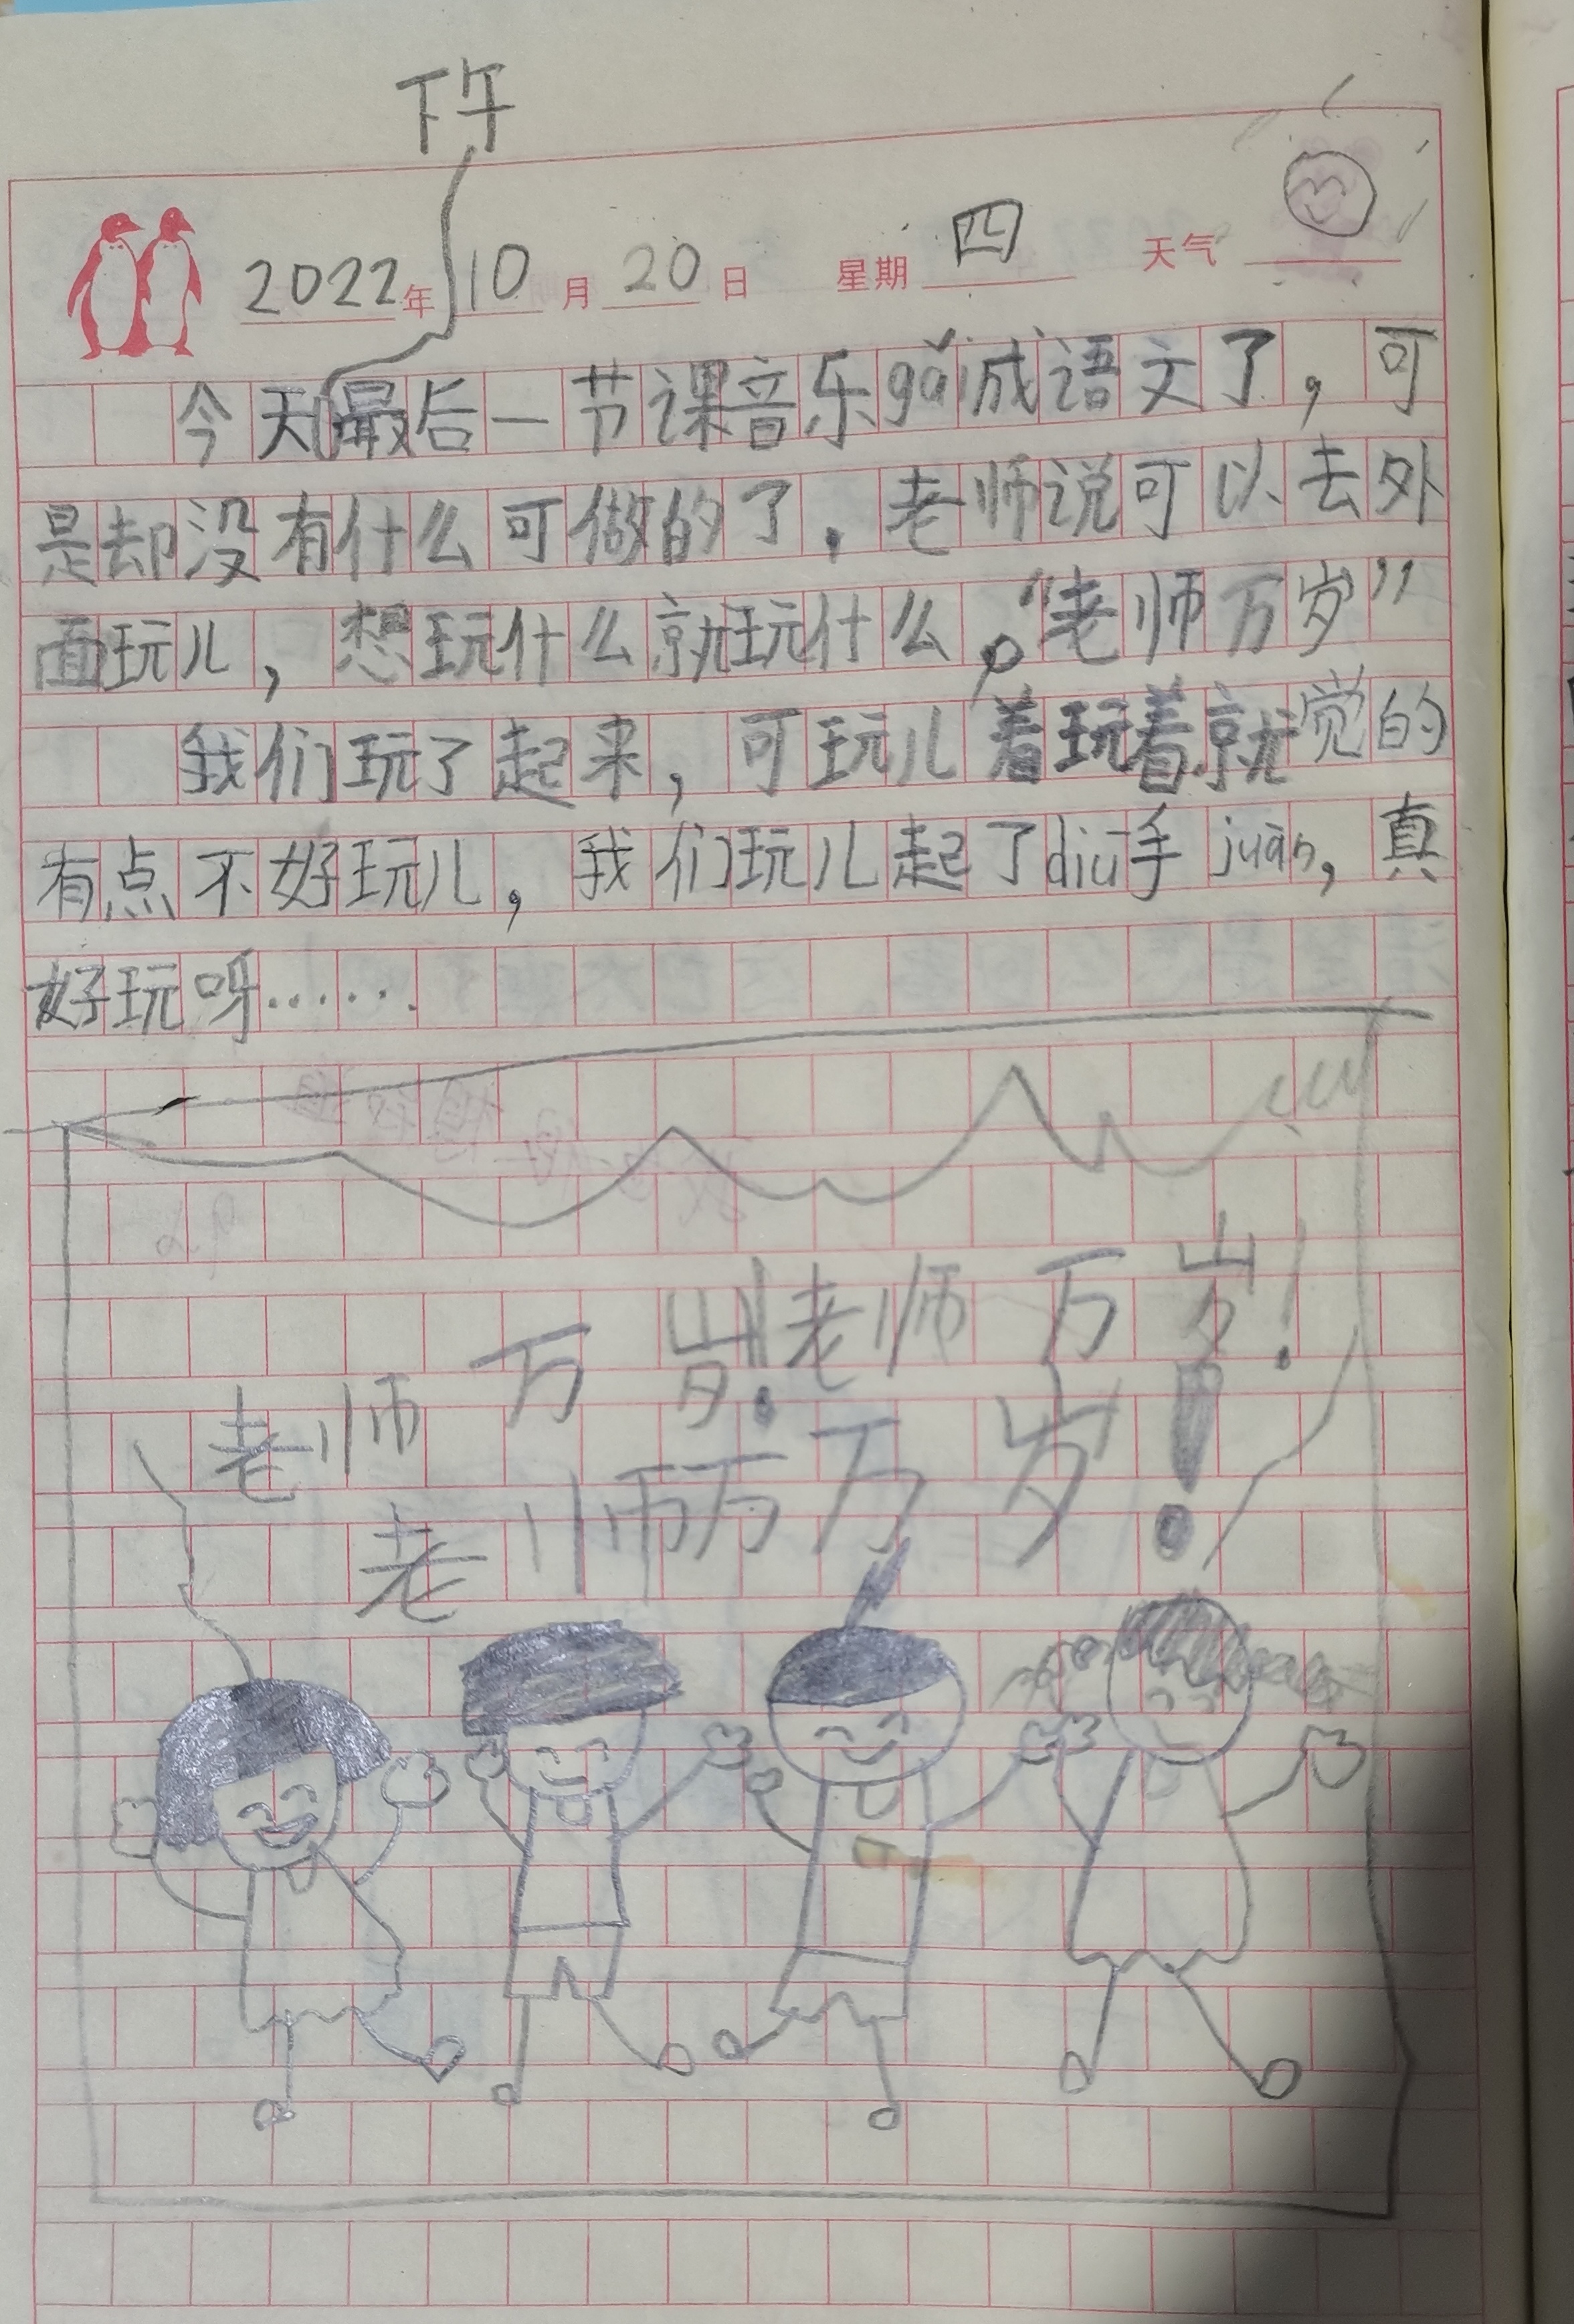 下午
2022年10月20日 星期四 天气
今天最后一节课音乐gǎi成语文了，可
是却没有什么可做的了．老师说可以去外
面玩儿，想玩什么就玩什么。“老师万岁”
我们玩了起来，可玩儿着玩着就觉的
有点不好玩儿，我们玩儿起了diū手juàn，真
好玩呀……
老师万岁！老师万岁！
老师万万岁！